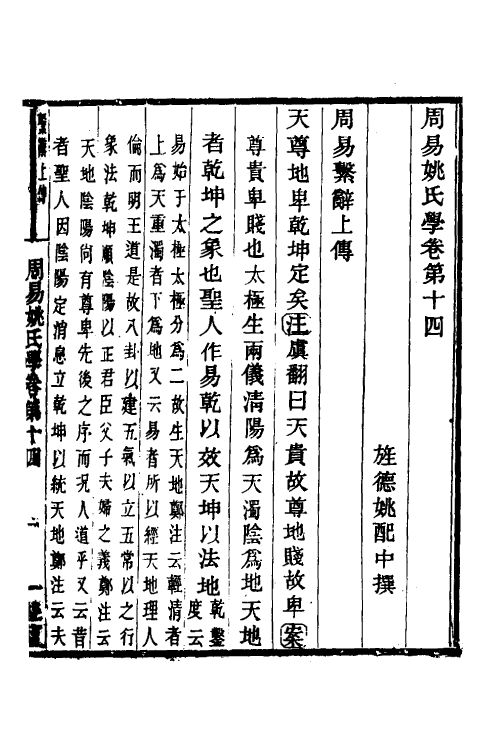 周易姚氏學卷第十四
旌德姚配中撰
周易繫辭上傳
天尊地卑乾坤定矣注虞翻曰天貴故尊地賤故卑案
尊貴卑賤也太極生兩儀清陽爲天濁陰爲地天地
者乾坤之象也聖人作易乾以效天坤以法地乾鑿度云
易始于太極太極分爲二故生天地鄭注云輕清者
上爲天重濁者下爲地又云易者所以經天地理人
倫而明王道是故八卦以建五氣以立五常以之行
象法乾坤順陰陽以正君臣父子夫婦之義鄭注云
天地陰陽尙有尊卑先後之序而況人道乎又云昔
者聖人因陰陽定消息立乾坤以統天地鄭注云夫
繫辭上傳
周易姚氏學卷第十四
一